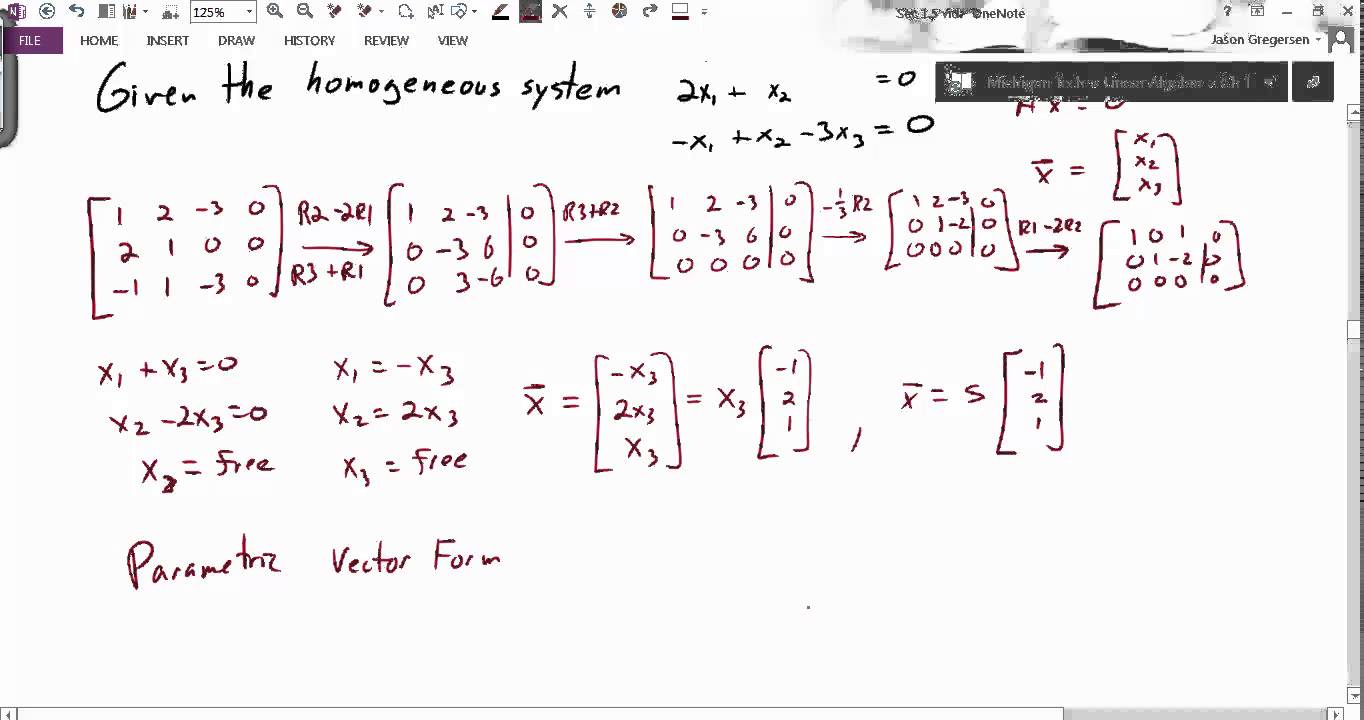 125%
OneNote
FILE HOME INSERT DRAW HISTORY REVIEW VIEW
Jason Gregersen
Given the homogeneous system
2x₁ + x₂ = 0
-x₁ + x₂ - 3x₃ = 0
x̄ = [x₁ x₂ x₃]
[1 2 -3 0
2 1 0 0
-1 1 -3 0]
R2-2R1
R3+R1
[1 2 -3 | 0
0 -3 6 | 0
0 3 -6 | 0]
R3+R2
[1 2 -3 | 0
0 -3 6 | 0
0 0 0 | 0]
-1/3 R2
[1 2 -3 | 0
0 1 -2 | 0
0 0 0 | 0]
R1-2R2
[1 0 1 | 0
0 1 -2 | 0
0 0 0 | 0]
x₁ + x₃ = 0
x₂ - 2x₃ = 0
x₃ = free
x₁ = -x₃
x₂ = 2x₃
x₃ = free
x̄ = [-x₃ 2x₃ x₃] = x₃ [-1 2 1] , x̄ = s [-1 2 1]
Parametric Vector Form